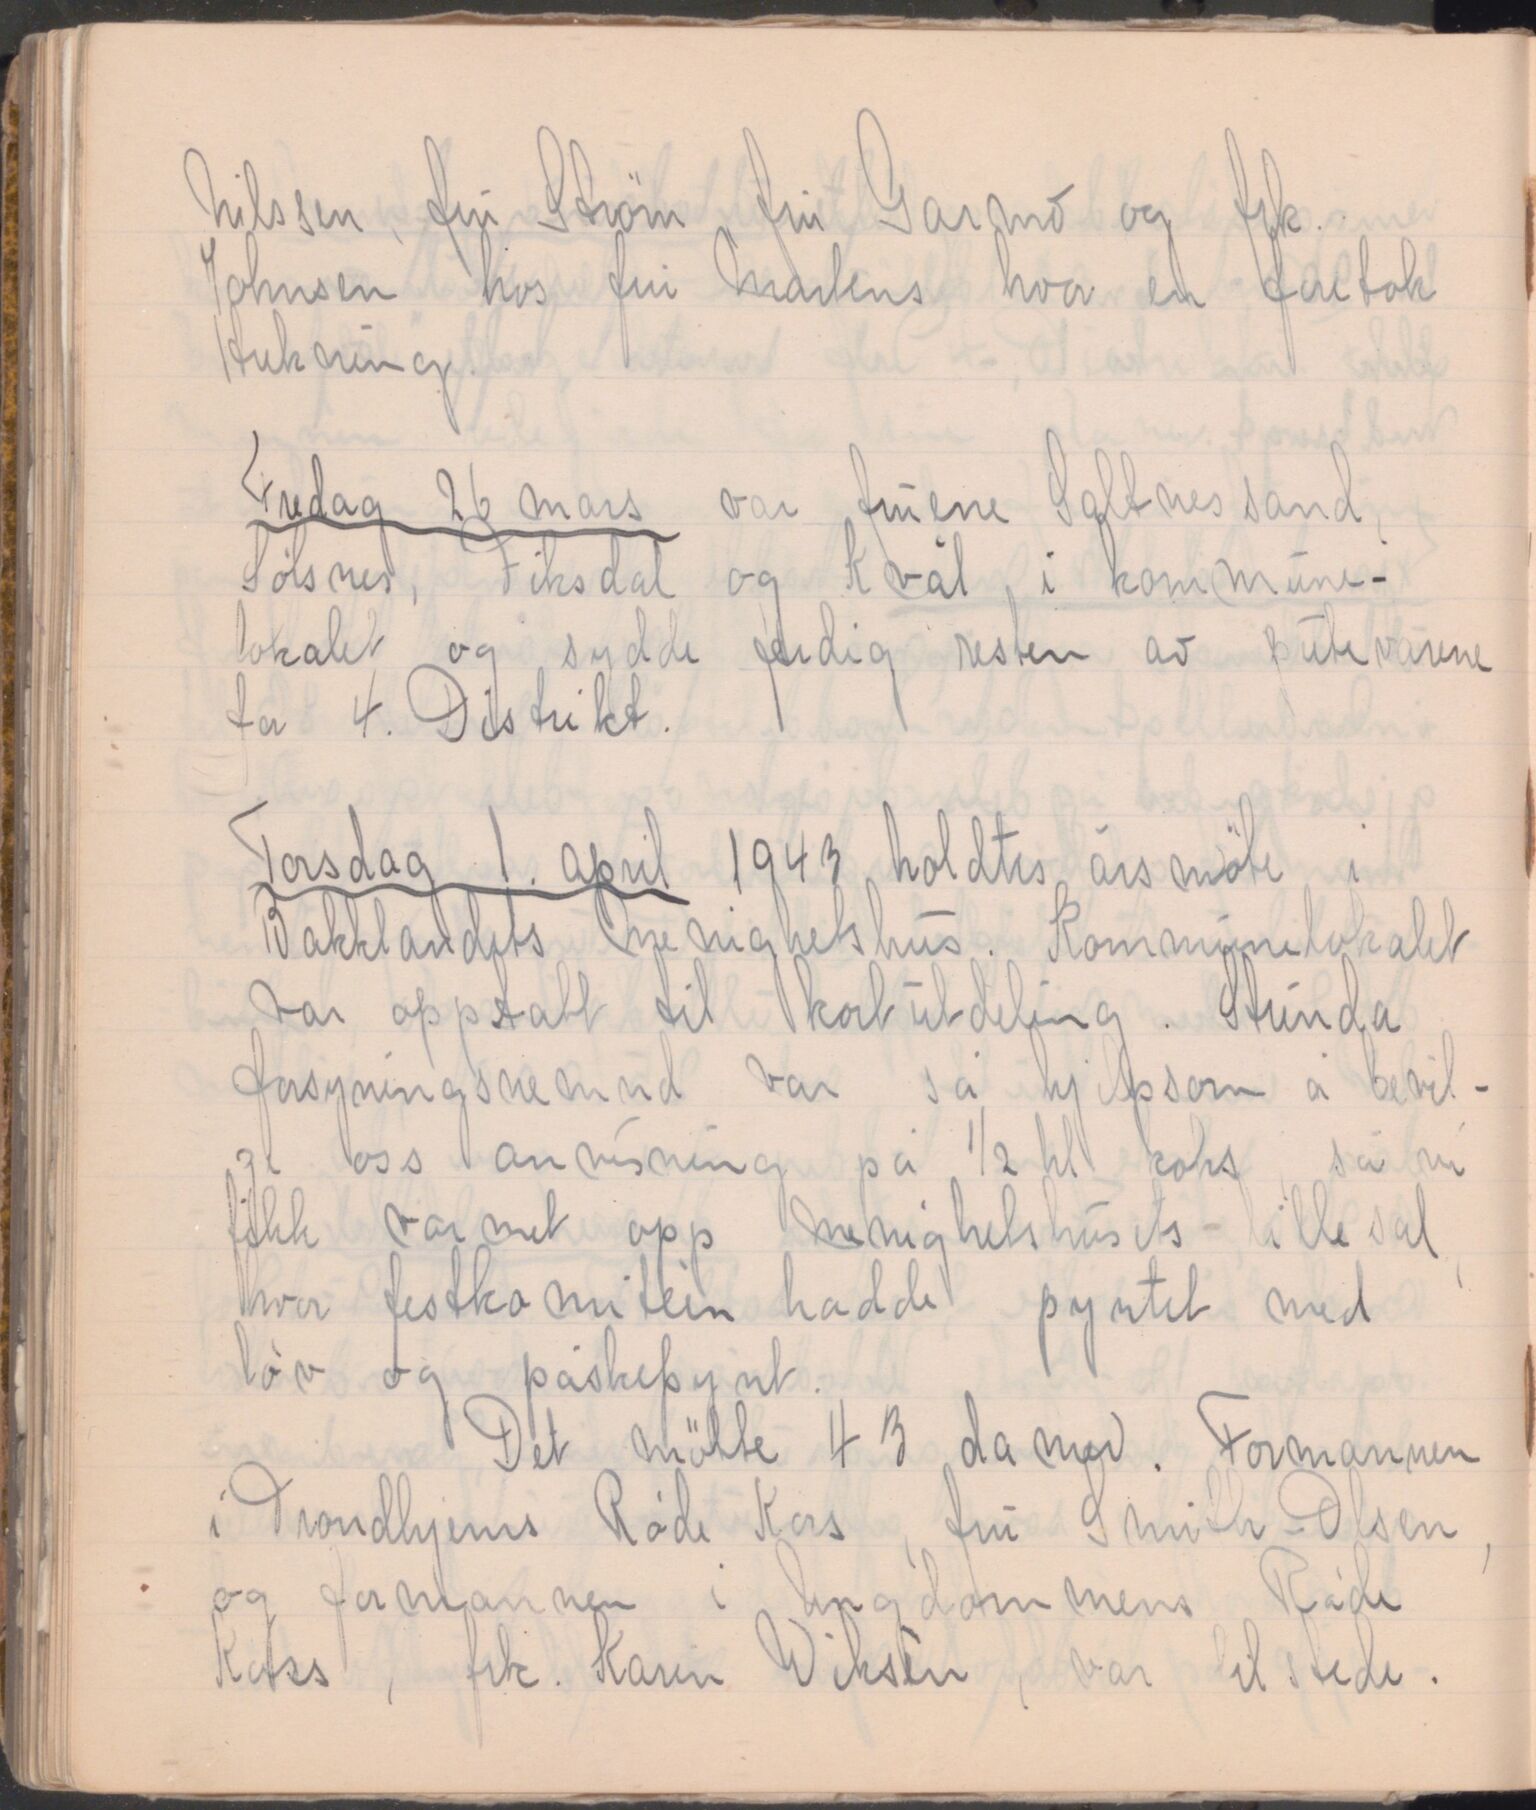 Nilssen, fru Ström fru Garmo og frk.
Johnsen hos fru Martens hvor en foretok
trekning.
Fredag 26 mars var fruene Saltnessand,
Sölsnes, Fiksdal og Kvål, i kommune-
lokalet og sydde ferdig resten av putevarene
for 4. Distrikt.
Torsdag 1. april 1943 holdtes årsmöte i
Bakklandets menighetshus. Kommunelokalet
var opptatt til kortutdeling. Strinda
forsyningsnemnd var så hjelpsom å bevil-
ge oss anvisning på 1/2 hl koks, så vi
fikk varmet opp menighetshusets lille sal,
hvor festkomiteen hadde pyntet med
löv og påskepynt.
Det mötte 43 damer. Formannen
i Trondhjems Röde Kors, fru Smith-Olsen,
og formannen i Ungdommens Röde
Kors, frk. Karen Wiksén, var tilstede.